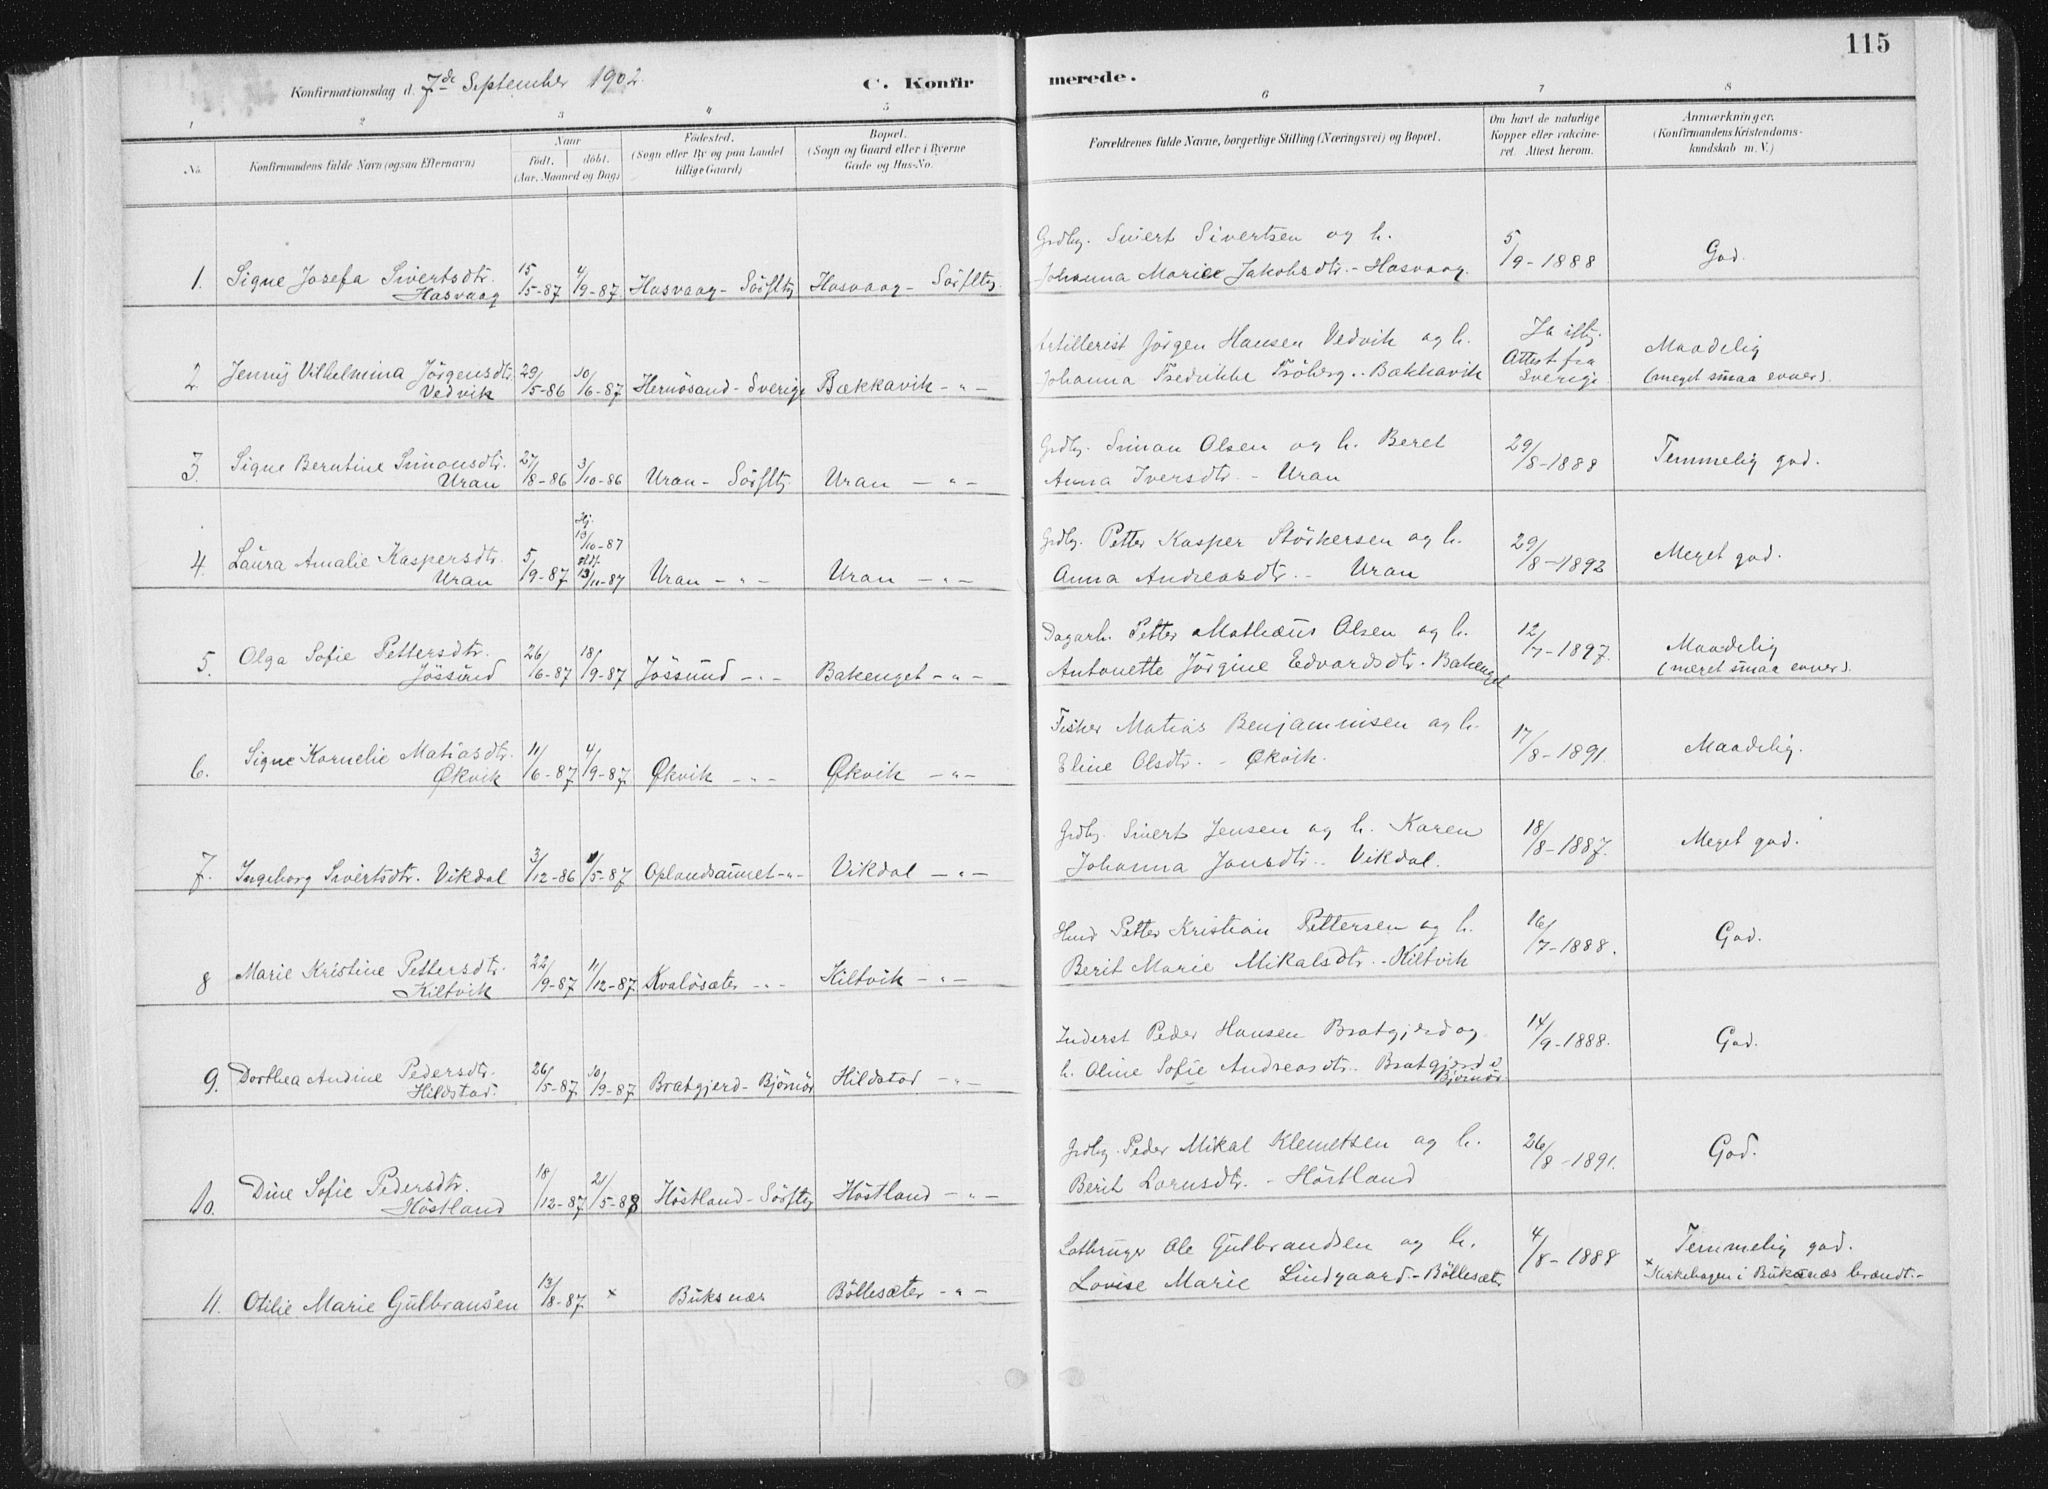 115
Konfirmationsdag d. 7de September 1902.
C. Konfirmerede.
1 2 3 4 5 6 7 8
No.
Konfirmandens fulde Navn (ogsaa Efternavn)
Naar
født. døbt.
(Aar, Maaned og Dag)
Fødested.
(Sogn eller By og paa Landet
tillige Gaard)
Bopæl.
(Sogn og Gaard eller i Byerne
Gade og Hus-No.
Forældrenes fulde Navne, borgerlige Stilling (Næringsvei) og Bopæl.
Om havt de naturlige
Kopper eller vakcine-
ret. Attest herom.
Anmærkninger.
(Konfirmandens Kristendoms-
kundskab m. V.)
Grdbr. Sivert Sivertsen og h. 5/9-1888 God.
1. Signe Josefa Sivertsdtr. 15/5-87 4/9-87. Hasvaag - Sörfltg Hasvaag - Sörfltg. Johanna Marie Jakobsdtr. - Hasvaag.
Hasvaag
Artillerist Jörgen Hansen Vedvik og h. Ja iflg. Maadelig
2. Jenny Vilhelmina Jörgensdtr. 29/5-86 10/6-87 Hernösand - Sverige Bækkavik - " - Johanna Fredrikke Fröberg. - Bækkavik Attest fra (meget smaa evner).
Vedvik Sverige
Grdbr. Simon Olsen og h. Beret 29/8-1888 Temmelig god.
3. Signe Berntine Simonsdtr. 27/8-86 3/10-86 Uran - Sörfltg Uran - " - Anna Iversdtr. - Uran
Uran
Hj. 13/10-87
Grdbr. Petter Kasper Störkersen og h. 29/8-1892 Meget god.
4. Laura Amalie Kaspersdtr. 5/9-87 13/11-87 Uran - " - Uran - " - Anna Andreasdtr. - Uran
Uran
Dagarb. Petter Mathæus Olsen og h. 12/7-1897. Maadelig
5. Olga Sofie Pettersdtr. 26/6-87 18/9-87 Jössund - " - Bakenget - " - Antonette Jörgine Edvardsdtr. - Bakenget (meget smaa evner).
Jössund
Fisker Matias Benjaminsen og h. 17/8-1891. Maadelig.
6. Signe Kornelie Matiasdtr. 11/6-87 4/9-87 Økvik - " - Økvik - " - Eline Olsdtr. - Økvik.
Økvik
Grdbr. Sivert Jensen og h. Karen 18/8-1887. Meget god.
7. Ingeborg Sivertsdtr. Vikdal 3/12-86 1/5-87 Oplandsaunet - " - Vikdal - " - Johanna Jonsdtr. - Vikdal.
Hmd Petter Kristian Pettersen og h. 16/7-1888. God.
8 Marie Kristine Pettersdtr. 22/9-87 11/12-87. Kvalösæter - " - Kiltvik - " - Berit Marie Mikalsdtr. - Kiltvik
Kiltvik
Inderst Peder Hansen Bratgjerd og 14/9-1888. God.
9. Dorthea Andine Pedersdtr. 26/5-87 10/9-87 Bratgjerd - Bjørnör Hildstad - " - h. Oline Sofie Andreasdtr. Bratgjerd i
Hildstad. Bjørnör
Grdbr. Peder Mikal Klemetsen og h. 26/8-1891. God.
10. Dine Sofie Pedersdtr. 18/12-87 21/5-88 Höstland - Sörfltg Höstland - " - Berit Lornsdtr. - Höstland
Höstland
Ole Gulbrandsen og h. 4/8-1888 Temmelig god.
11. Otilie Marie Gulbransen 13/8-87. × Buksnæs Böllesæter - " - Lovise Marie Lindgaard. - Böllesæter × Kirkebogen i Buksnæs brændt. -